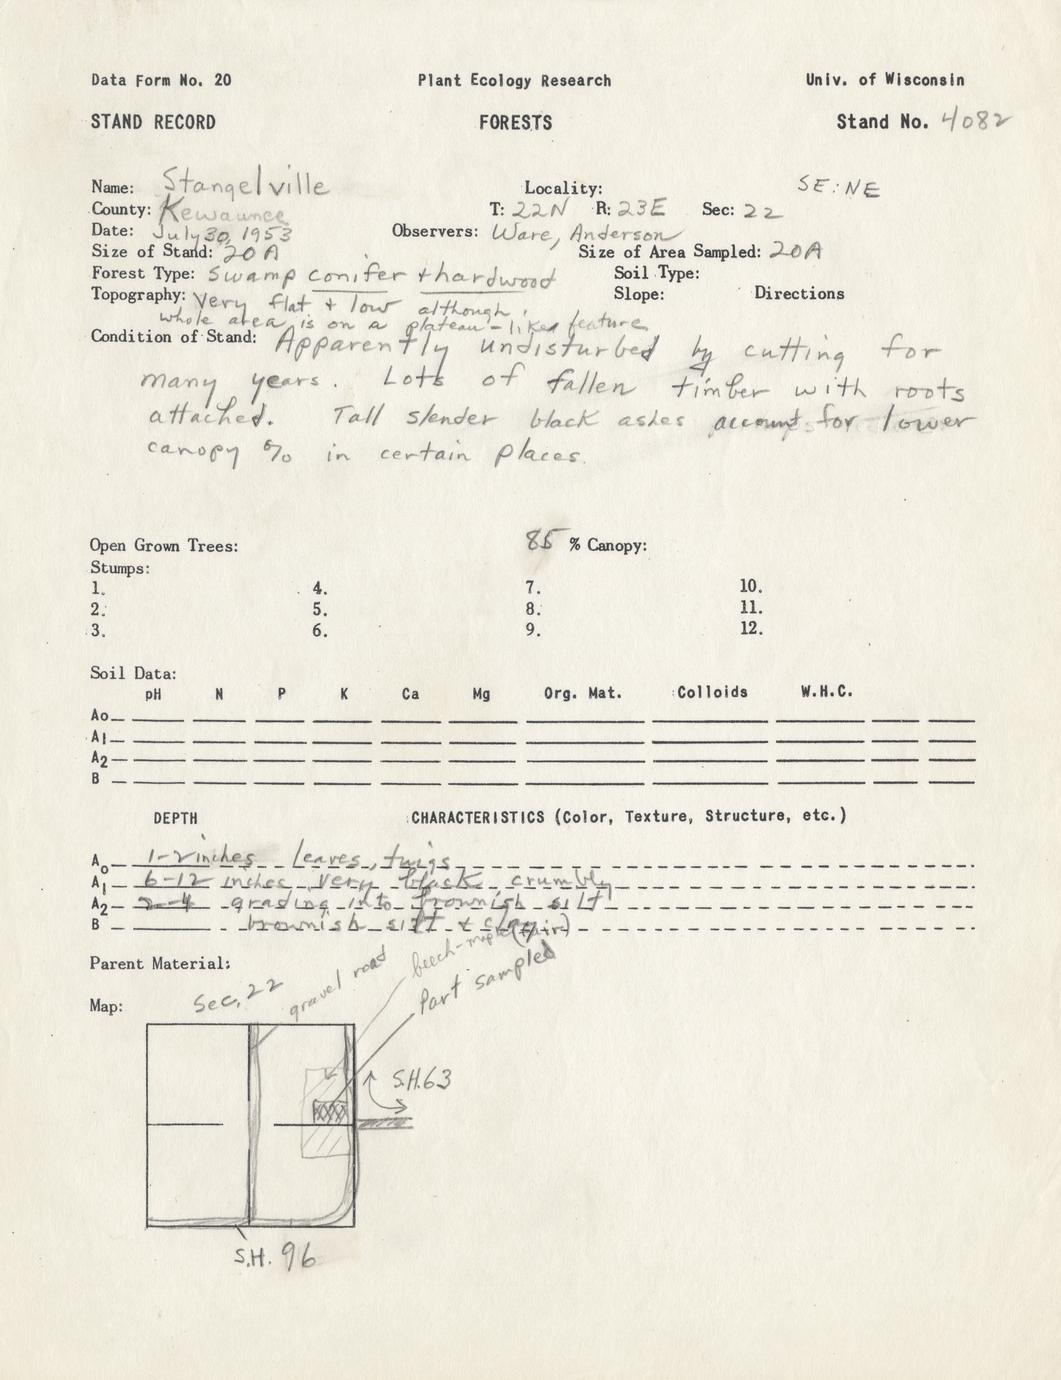 Data Form No. 20 Plant Ecology Research Univ. of Wisconsin
STAND RECORD FORESTS Stand No. 4082
Name: Stangelville Locality: SE:NE
County: Kewaunee T: 22N R: 23E Sec: 22
Date: July 30, 1953 Observers: Ware, Anderson
Size of Stand: 20 A Size of Area Sampled: 20A
Forest Type: Swamp conifer + hardwood Soil Type:
Topography: Very flat + low although, Slope: Directions
whole area is on a plateau-like feature
Condition of Stand: Apparently undisturbed by cutting for
many years. Lots of fallen timber with roots
attached. Tall slender black ashes account for lower
canopy % in certain places.
Open Grown Trees: 85 % Canopy:
Stumps:
1. 4. 7. 10.
2. 5. 8. 11.
3. 6. 9. 12.
Soil Data:
pH N P K Ca Mg Org. Mat. Colloids W.H.C.
Ao
A1
A2
B
DEPTH CHARACTERISTICS (Color, Texture, Structure, etc.)
Ao 1-2 inches leaves, twigs
A1 6-12 inches very black crumbly
A2 2-4 grading into brownish silt
B brownish silt & clay
Parent Material:
Map: Sec. 22 gravel road beech-maple (fair)
Part sampled
S.H. 63
S.H. 96